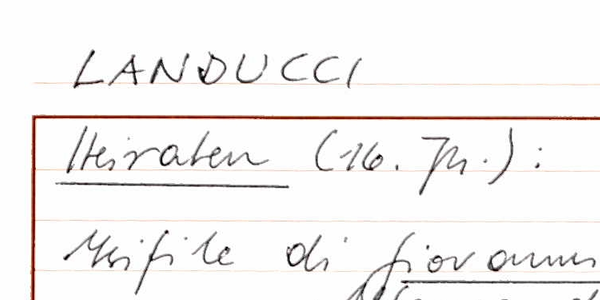 LANDUCCI
Heiraten (16. Jh.):
di Giovanni